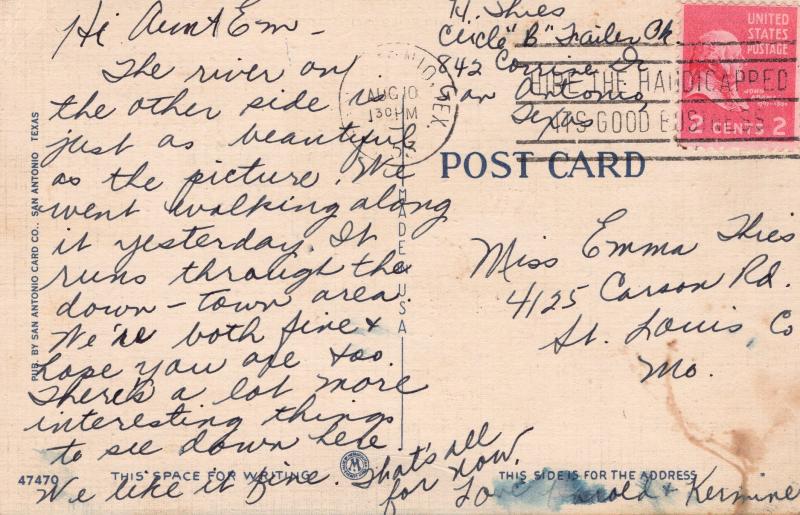 Hi Aunt Em -
The river on
the other side is
just as beautiful
as the picture. We
went walking along
it yesterday. It
runs through the
down-town area.
We're both fine &
hope you are too.
There's a lot more
interesting things
to see down here
We like it fine. That's all
for now.
Love Harold & Kermine
H. Thies
Circle "B" Trailer Ck
842 Corrine Dr
San Antonio,
Texas
AUG 10
130 PM
TEX.
HIRE THE HANDICAPPED
IT'S GOOD BUSINESS
UNITED
STATES
POSTAGE
JOHN ADAMS
2 CENTS 2
POST CARD
Miss Emma Thies
4125 Carson Rd.
St. Louis Co
Mo.
PUB. BY SAN ANTONIO CARD CO., SAN ANTONIO, TEXAS
MADE IN USA
47470
THIS SPACE FOR WRITING
THIS SIDE IS FOR THE ADDRESS